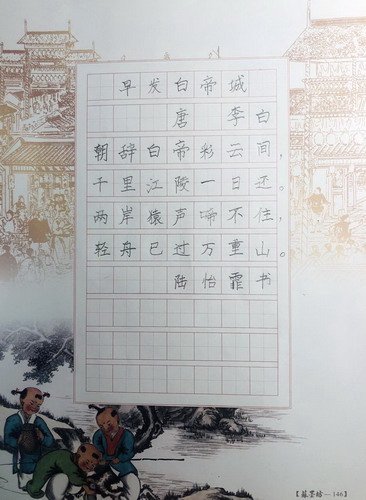 早发白帝城
唐 李白
朝辞白帝彩云间，
千里江陵一日还。
两岸猿声啼不住，
轻舟已过万重山。
陆怡霏书
【蕴墨坊—146】